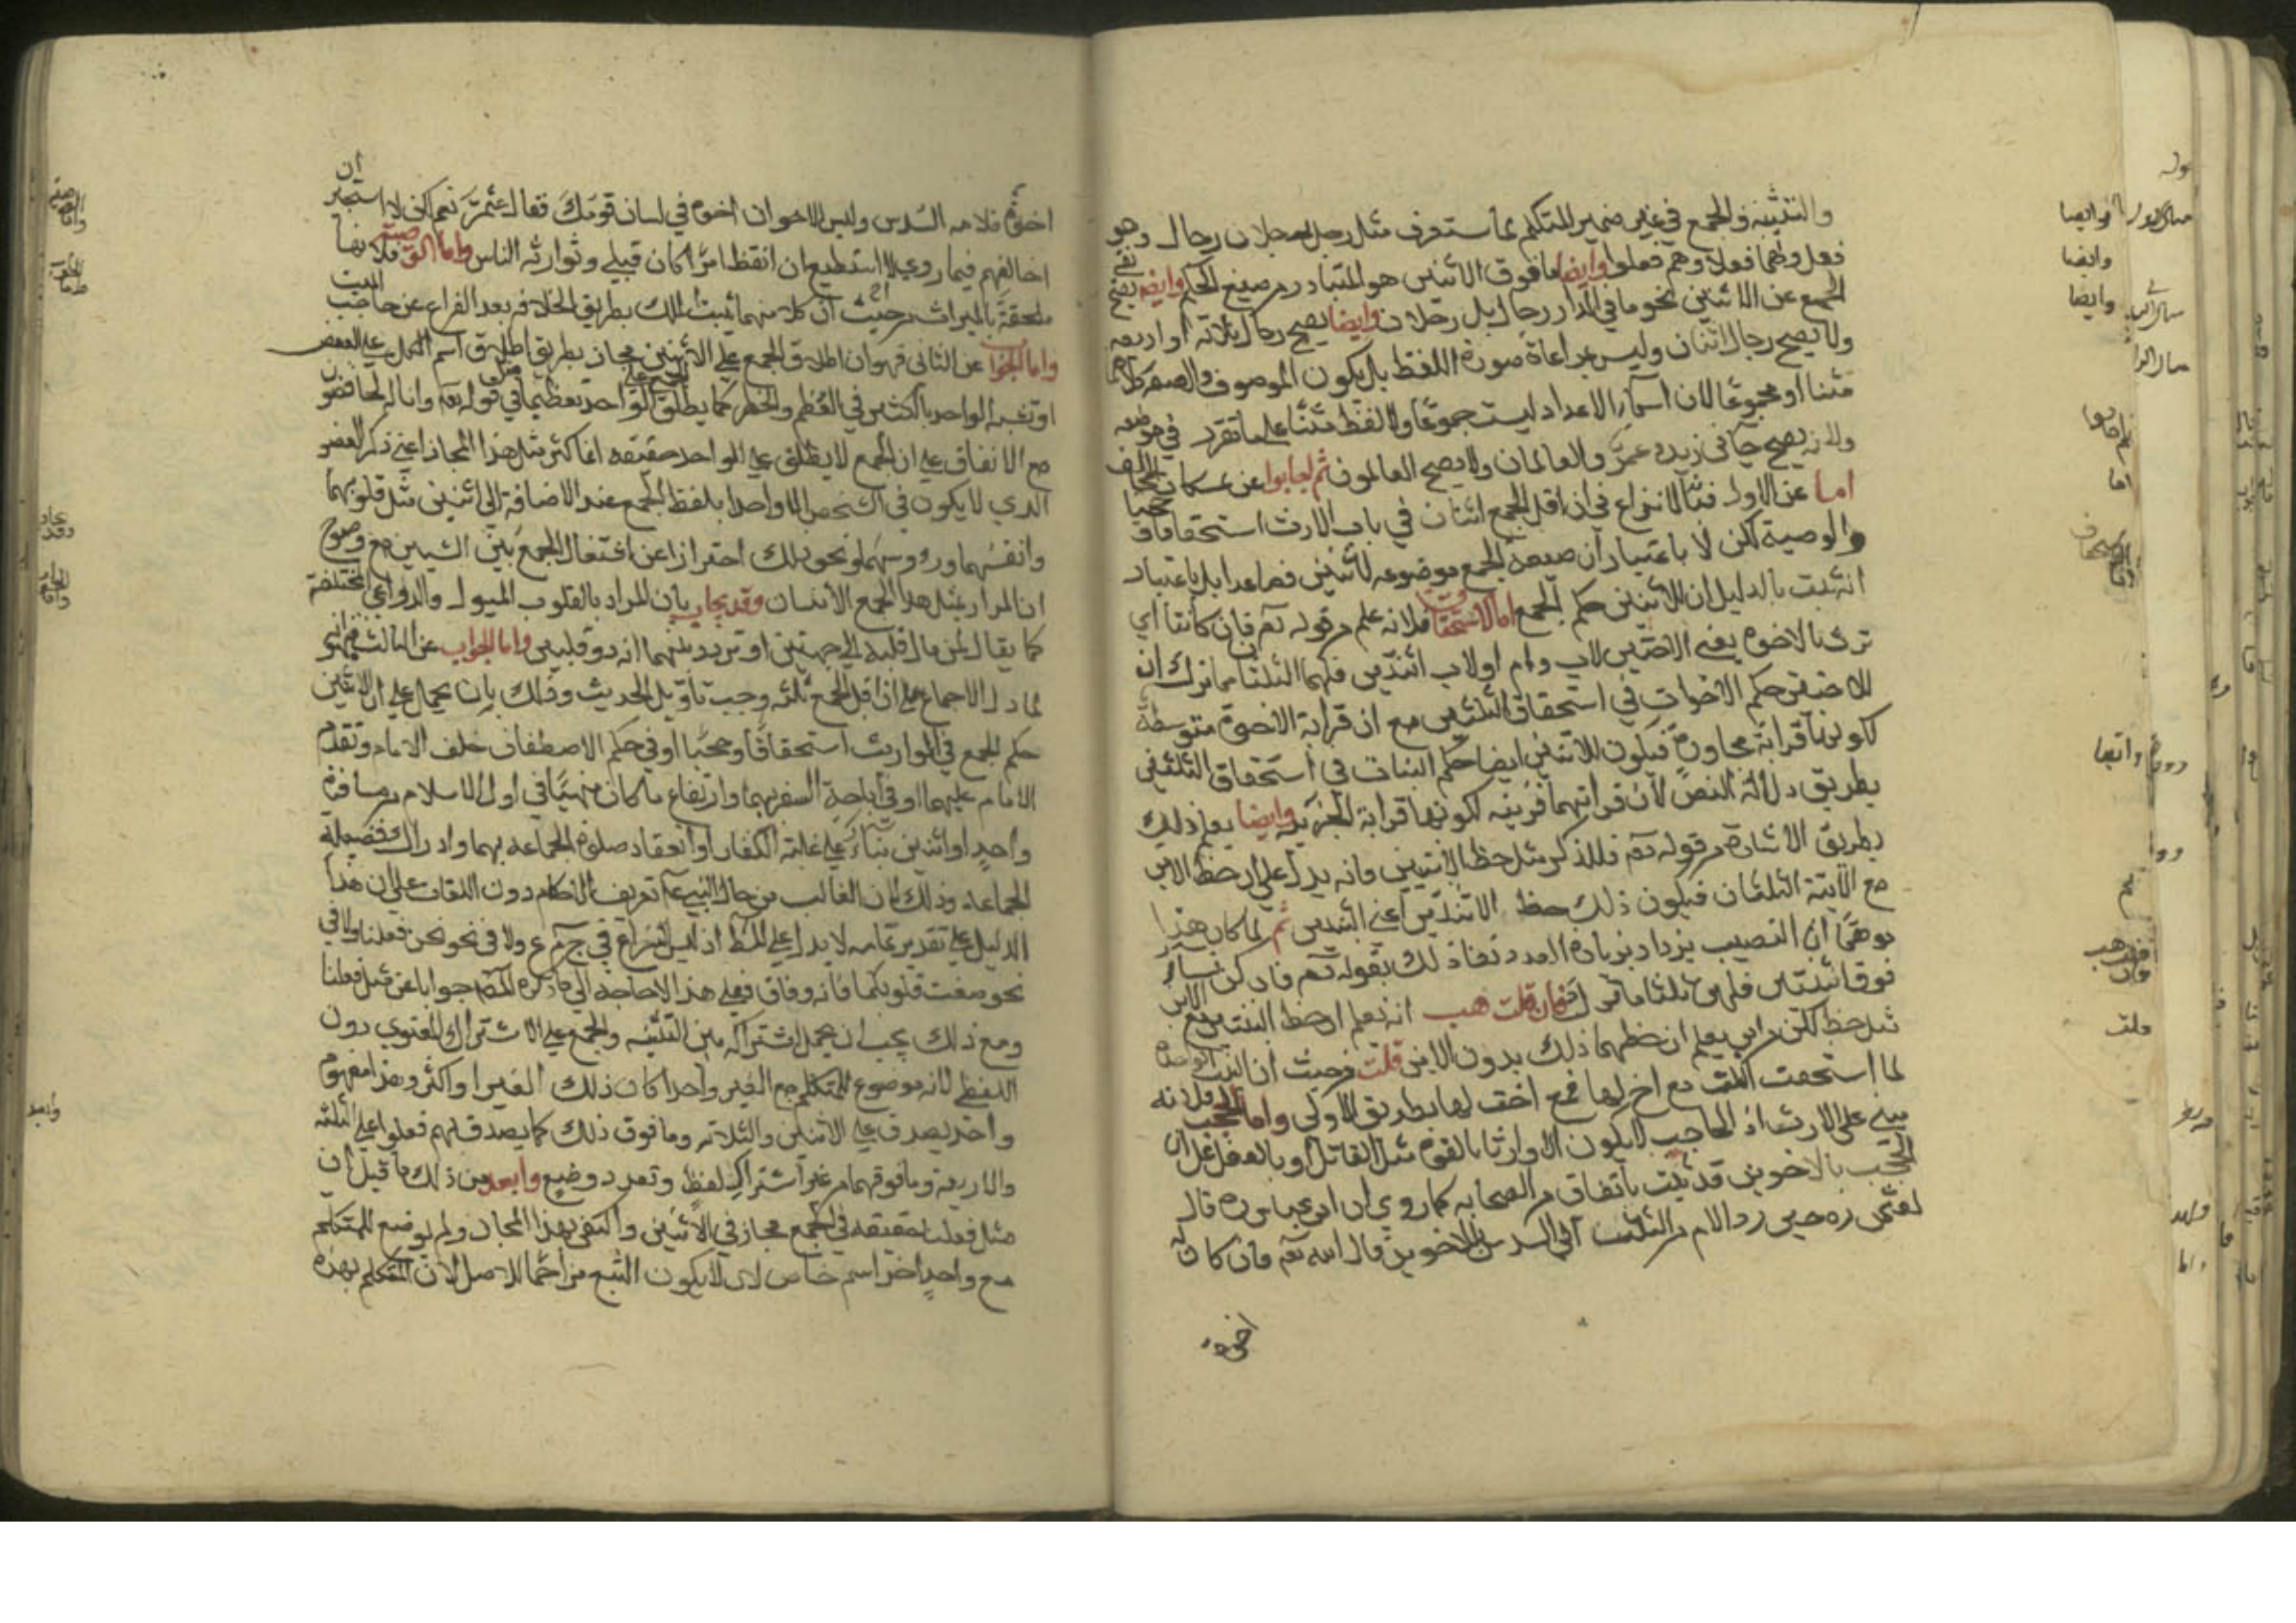 والتثنيه والجمع في غير ضمير المتكلم لما ستعرف مثل رجل رجلان رجال وهو
فعل وهما فعلا وهم فعلوا وايضا ما فوق الاثنين هو المتبادر من صيغ الجمع وايضا يصح نفي
الجمع عن الاثنين نحو ما في الدار رجال بل رجلان وايضا يصح رجال ثلاثة او اربعه
ولا يصح رجال اثنان وليس مراعاة صورة اللفظ بان يكون الموصوف والصفة كلاهما
مثنا او مجموعا لان اسماء الاعداد ليست جموعا ولا لفظ مثنا على ما تقرر في موضعه
ولانه يصح جاءني زيد وعمرو والعالمان ولا يصح العالمون ثم اجابوا عن تمسكات المخالف
اما عن الاول فبان لا نزاع في ان اقل الجمع اثنان في باب الارث استحقاقا وحجبا
والوصية لكن لا باعتبار ان صيغة الجمع موضوعه للاثنين فصاعدا بل باعتبار
انه ثبت بالدليل ان للاثنين حكم الجمع اما الاستحقاق فلانه علم من قوله تع فان كانتا اي
من يرث بالاخوة يعني الاختين لاب وام او لاب اثنتين فلهما الثلثان مما ترك ان
للاختين حكم الاخوات في استحقاق الثلثين مع ان قرابة الاخوة متوسطة
لكونها قرابة مجاورة فيكون للاثنتين ايضا حكم البنات في استحقاق الثلثين
بطريق دلالة النص لان قرابتهما قريبه لكونها قرابة الجزئية وايضا يعلم ذلك
بطريق الاشارة من قوله تع للذكر مثل حظ الانثيين فانه يدل على ان حظ الابن
مع الابنة الثلثان فيكون ذلك حظ الاثنتين اعني البنتين ثم لما كان هذا
موهما ان النصيب يزداد بزيادة العدد نفا ذلك بقوله تع فان كن نساء
فوق اثنتين فلهن ثلثا ما ترك فان قلت هب انه يعلم ان حظ البنتين مع الابن
مثل حظه لكن من اين يعلم ان حظهما ذلك بدون الابن قلت من حيث ان البنت الواحدة
لما استحقت الثلث مع اخ لها فمع اخت لها بطريق الاولى واما الحجب فلانه
مبني على الارث اذ الحاجب لا يكون الا وارثا بالقوة مثل القاتل او بالفعل على ان
الحجب بالاخوين قد ثبت باتفاق من الصحابه كما روي ان ابن عباس ره قال
لعثمان ره حين رد الام من الثلث الى السدس بالاخوين قال الله تع فان كان له
اخوة
اخوة فلامه السدس وليس الاخوان اخوة في لسان قومك فقال عثمن نعم لكن لا استجيز ان
اخالفهم فيما روي لا استطيع ان انقض امرا كان قبلي وتوارثه الناس واما الوصية فلانها
ملحقة بالميراث من حيث ان كلا منهما يثبت الملك بطريق الخلافه بعد الفراغ عن حاجت الميت
واما الجواب عن الثاني فهو ان اطلاق الجمع على الاثنين مجاز بطريق اطلاق اسم الكل على البعض
او تشبيه الواحد بالكثير في العظم والخطر كما يطلق الجمع على الواحد تعظيما في مثل قوله تع وانا له لحافظون
مع الاتفاق على ان الجمع لا يطلق على الواحد حقيقه انما كثر مثل هذا المجاز اعني ذكر العضو
الذي لا يكون في الشخص الا واحدا بلفظ الجمع عند الاضافة الى اثنين مثل قلوبهما
وانفسهما ورءوسهما ونحو ذلك احترازا عن استثقال الجمع بين التثنيتين مع وضوح
ان المراد بمثل هذا الجمع الاثنان وقد يجاب بان المراد بالقلوب الميول والدواعي المختلفة
كما يقال لمن مال قلبه الى جهتين او تردد بينهما انه ذو قلبين واما الجواب عن الثالث فهو انه
لما دل الاجماع على ان اقل الجمع ثلثه وجب تاويل الحديث وذلك بان يحمل على ان للاثنين
حكم الجمع في المواريث استحقاقا وحجبا او في حكم الاصطفاف خلف الامام وتقدم
الامام عليهما او في اباحة السفر بهما وارتفاع ما كان منهيا في اول الاسلام من مسافرة
واحد او اثنين بناء على غلبة الكفار او انعقاد صلوة الجماعه بهما وادراك فضيلة
الجماعه وذلك لان الغالب من حال النبي ع م تعريف الاحكام دون اللغات على ان هذا
الدليل على تقدير تمامه لا يدل على المط اذ ليس النزاع في ج م ع ولا في نحو نحن فعلنا ولا في
نحو صغت قلوبكما فانه وفاق فعلى هذا لا حاجة الى ما ذكره المص جوابا عن مثل فعلنا
ومع ذلك يجب ان يحمل اشتراكه بين التثنيه والجمع على الاشتراك المعنوي دون
اللفظي لانه موضوع للمتكلم مع الغير واحدا كان ذلك الغير او اكثر وهذا مفهوم
واحد يصدق على الاثنين والثلاثه وما فوق ذلك كما يصدق هم فعلوا على الثلثه
والاربعه وما فوقهما من غير اشتراك لفظ وتعدد وضع وابعد من ذلك ما قيل ان
مثل فعلنا حقيقه في الجمع مجاز في الاثنين واكتفى بهذا المجاز ولم يوضع للمتكلم
مع واحد اخر اسم خاص لان لا يكون التبع مزاحما للاصل لان المتكلم بهذه